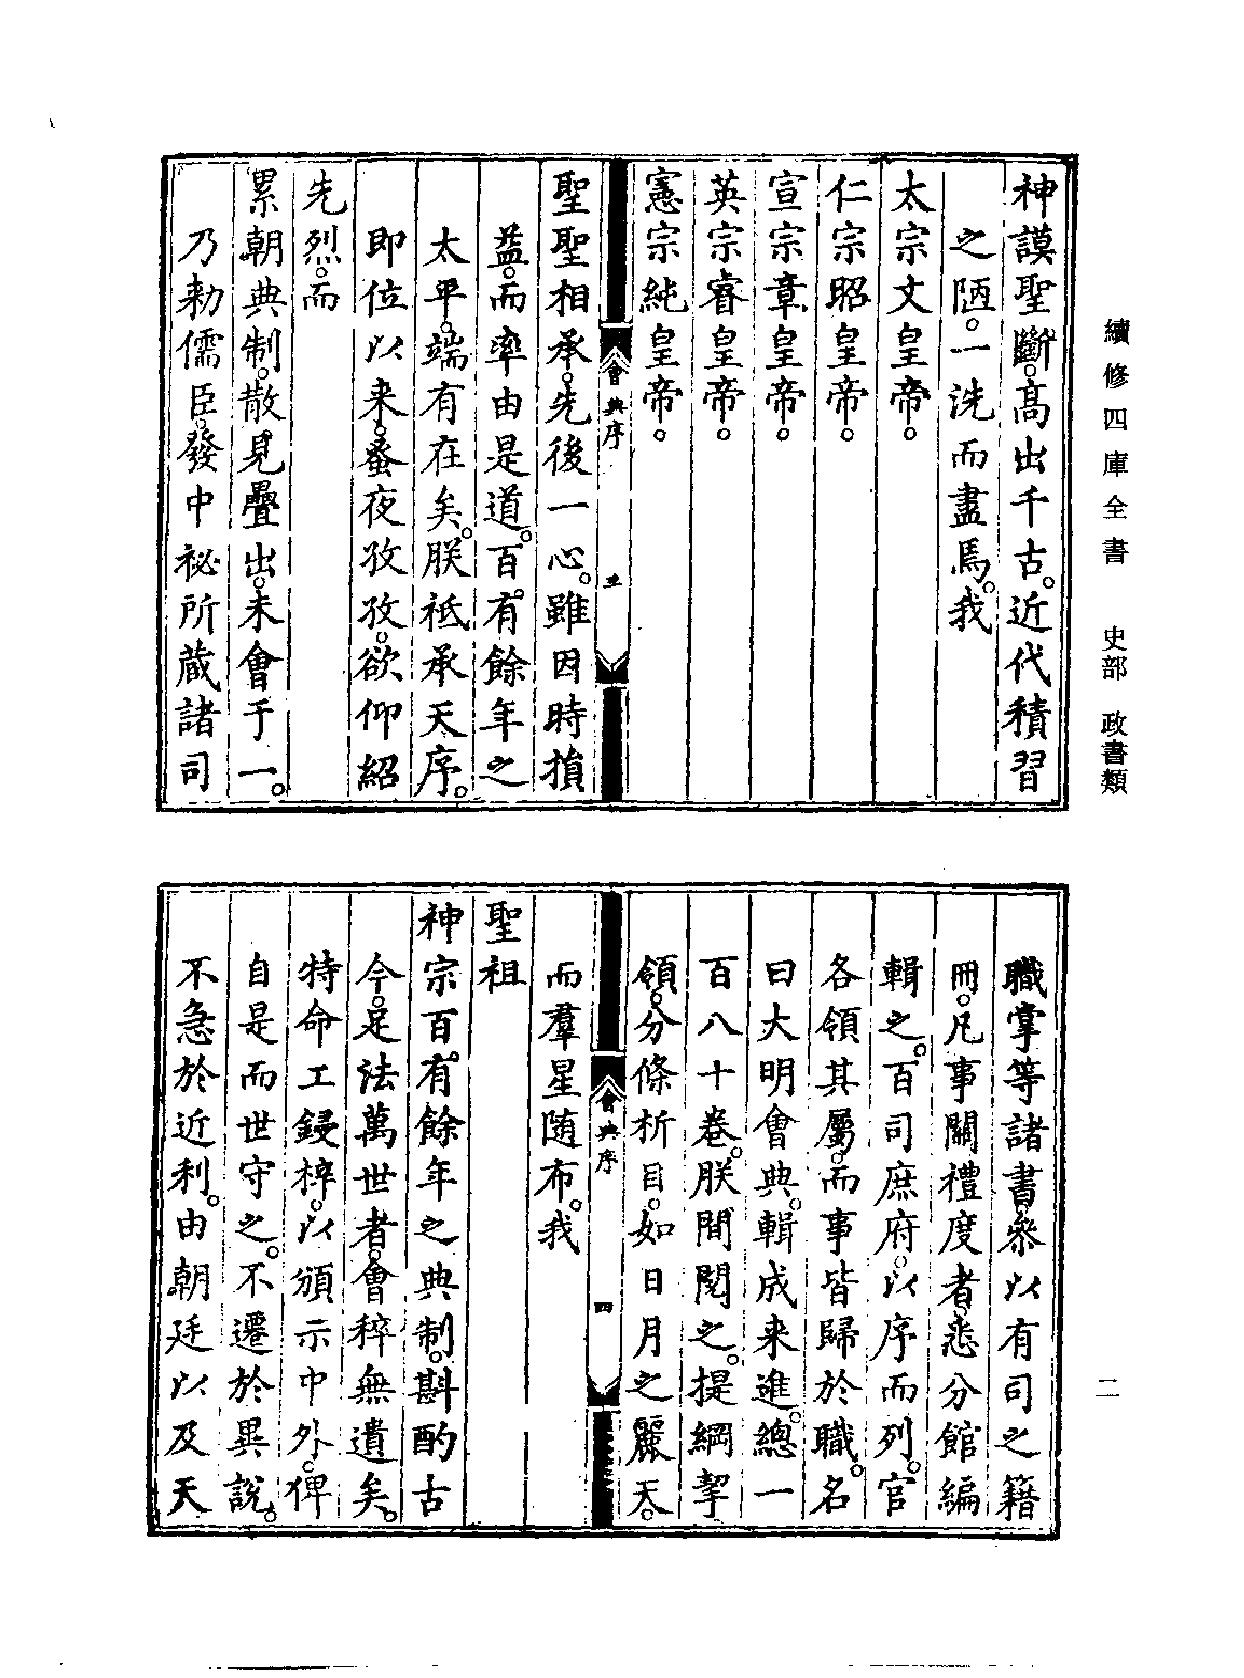 續修四庫全書 史部 政書類
神謨聖斷。高出千古。近代積習
之陋。一洗而盡焉。我
太宗文皇帝。
仁宗昭皇帝。
宣宗章皇帝。
英宗睿皇帝。
憲宗純皇帝。
會典序 三
聖聖相承。先後一心。雖因時損
益。而率由是道。百有餘年之
太平。端有在矣。朕祗承天序。
即位以来。蚤夜孜孜。欲仰紹
先烈。而
累朝典制。散見疊出。未會于一。
乃勑儒臣。發中祕所蔵諸司
二
職掌等諸書。叅以有司之籍
冊。凡事關禮度者。悉分館編
輯之。百司庶府。以序而列。官
各領其屬。而事皆歸於職。名
曰大明會典。輯成来進。總一
百八十卷。朕間閱之。提綱挈
領。分條析目。如日月之麗天。
會典序 四
而羣星随布。我
聖祖
神宗百有餘年之典制。斟酌古
今。足法萬世者。會稡無遺矣。
特命工鋟梓。以頒示中外。俾
自是而世守之。不遷於異說。
不急於近利。由朝廷以及天